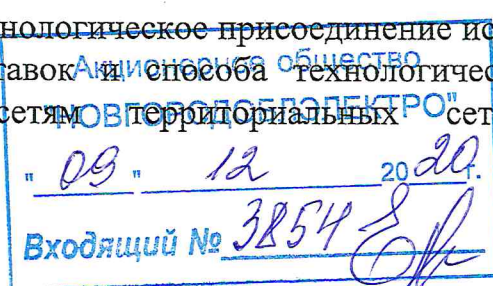 нологическое присоединение ис
тавок и способа технологичес
сетям территориальных сет
Акционерное общество
"НОВГОРОДОБЛЭЛЕКТРО"
" 09 " 12 2020г.
Входящий № 3854